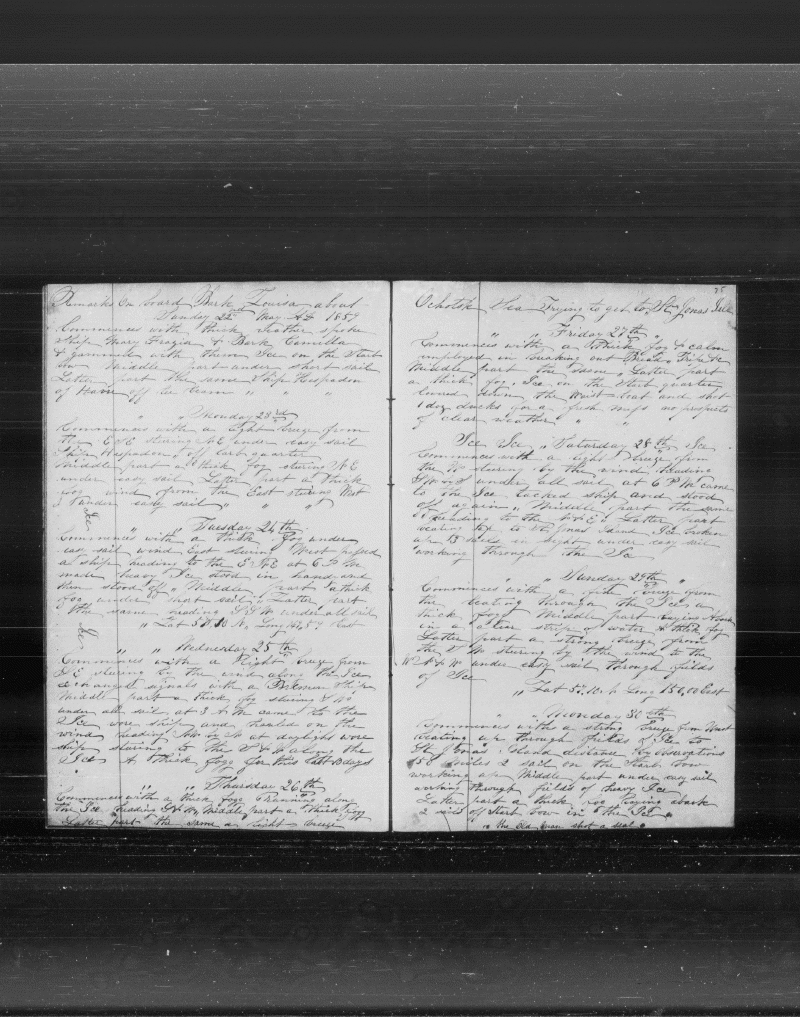 Remarks on board Bark Louisa about
Sunday 22nd May AD 1859
Commences with thick weather spoke
Ship Mary Frazia & Bark Camilla
& gammed with them Ice on the Start
bow Middle part under short sail
Latter part the same Ship
of Havre off lee beam " " "
" " Monday 23rd
Commences with a light breeze from
the ESE stering NE under easy sail
Ship off larb quarter
Middle part a thick fog stering NE
under easy sail Latter part a thick
fog wind from the East stering West
under easy sail " " " "
Ice
" " Tuesday 24th
Commences with a thick fog under
easy sail wind East stering West passed
a ship heading to the ENE at 6 P M
made heavy Ice stood in hand and
then stood off Middle part a thick
fog under short sail Latter part
the same heading under all sail
" Lat No Long East
Ice
" " Wednesday 25th
Commences with a light breeze from
SE stering by the wind along the Ice
exchanged signals with a Ship
Middle part a thick fog stering
under all sail at 3 A M came to the
Ice wore ship and hauled on the
wind heading at daylight wore
ship stering to the along the
Ice A thick fogg for this last days
" " " Thursday 26th
Commences with a thick fogg Running along
the Ice heading Middle part a thick fog
Latter part the same a light breeze
75
Ochotsk Sea Trying to get to St Jonas Isle
" " Friday 27th
Commences with a thick fog & calm
imployed in breaking out &c
Middle part the same Latter part
a thick fog Ice on the Start quarter
lowered down the Waist boat and shot
1 doz ducks for a fresh mess no prospects
of clear weather " "
Ice Ice " Saturday 28th Ice
Commences with a light breeze from
the W stering by the wind heading
under all sail at 6 P M came
to the Ice tacked ship and stood
off again Middle part the same
heading to the Latter part
beating up to St Jonas Island Ice broken
up 13 sails in sight under easy sail
working through the Ice
" " Sunday 29th "
Commences with a fine breeze from
the beating through the Ice a
thick fogg Middle part laying Aback
in a strip of water A thick fog
Latter part a strong breeze from
the stering by the wind to the
under easy sail through fields
of Ice
" Lat N Long 150,00 East
" " Monday 30th
Commences with a strong breeze from West
beating up through fields of Ice to
St Jonas Island distance by observations
58 miles 2 sail on the Starb bow
working up Middle part under easy sail
working through fields of heavy Ice
Latter part a thick fog laying aback
2 sails off Start bow in the Ice "
" the Old Man shot a seal "